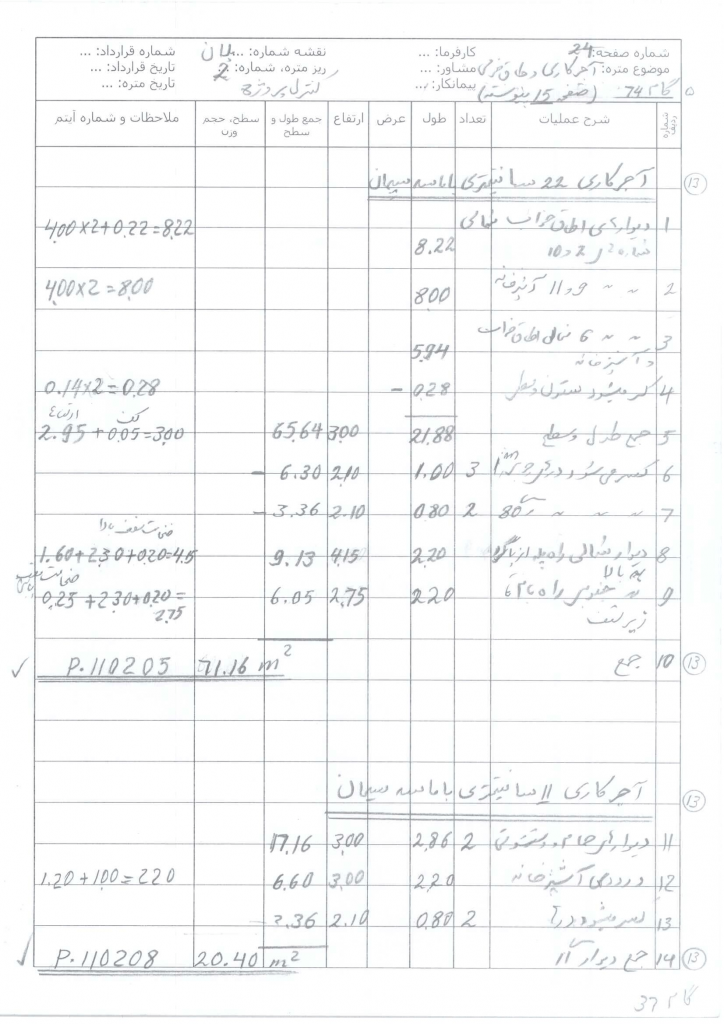 شماره صفحه: 24 کارفرما: ... نقشه شماره: ... پلان شماره قرارداد: ...
موضوع متره: آجرکاری و طاق ضربی مشاور: ... ریز متره، شماره: 2 تاریخ قرارداد: ...
گام 74 (صفحه 15 پیوسته) پیمانکار: ... کنترل پروژه تاریخ متره: ...
شماره ردیف شرح عملیات تعداد طول عرض ارتفاع جمع طول و سطح سطح، حجم وزن ملاحظات و شماره آیتم
13 آجرکاری 22 سانتیمتری با ماسه سیمان
1 دیوارهای اطاق خواب شمالی 4,00×2+0,22=8,22
شماره 2 و 10 8.22
2 〃 〃 9 و 11 آشپزخانه 8,00 4,00×2=8,00
3 〃 〃 6 شمال اطاق خواب 5,94
و آشپزخانه
4 کسر میشود ستون وسط 0,28 − 0.14×2=0,28
ارتفاع کف
5 جمع طول و سطح 21,88 3,00 65,64 2.95+0,05=3,00
6 کسر می شود درقی 3 1.00 2,10 6.30 −
7 〃 〃 〃 80 2 0,80 2.10 3.36 −
ضخامت سقف بالا
8 دیوار شمالی راه پله از پاگرد 2,20 4,15 9.13 1.60+2,30+0,20=4,5
به بالا
9 〃 جنوبی راه پله تا 2,20 2,75 6.05 0,25+2,30+0,20=
زیر سقف 2,75
ضخامت سقف
13 10 جمع 71.16 m² P.110205 ✓
13 آجرکاری 11 سانتیمتری با ماسه سیمان
11 دیوارهای حمام و دستشوئی 2 2,86 3,00 17,16
12 ورودی آشپزخانه 2,20 3,00 6,60 1,20+1,00=2,20
13 کسر میشود در 2 0,80 2.10 3.36
13 14 جمع دیوار 11 20.40 m² P.110208 ✓
گام 37